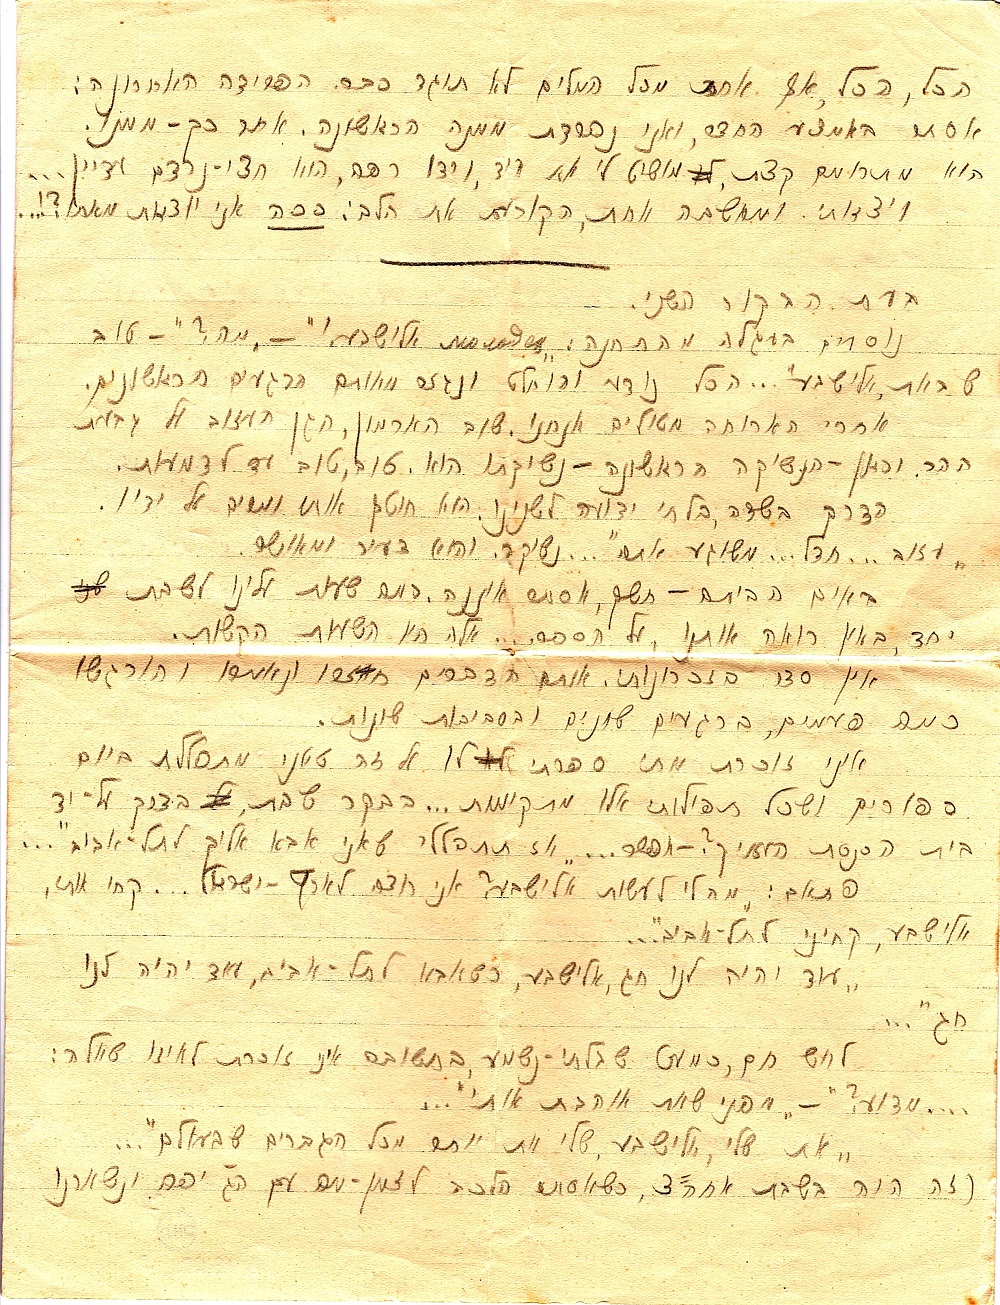 הכל, הכל, אף אחת מכל המלים לא תוגד כבר. הפרידה האחרונה:
אסתר באמצע החדר, ואני נפרדת ממנה הראשונה. אחר כך – ממנו.
הוא מתרומם קצת, מושיט לי את היד, וידו רפה, הוא חצי-נרדם עדיין...
ויצאתי. ומחשבה אחת, הקורעת את הלב: ככה אני יוצאת מאתו?!...
בעת הבקור השני.
נוסעים בעגלה מהתחנה: אלישבע!" – "מה?" – "טוב
שבאת, אלישבע"... הכל נודע והוחלט ונגזר מאותם הרגעים הראשונים.
אחרי הארוחה מטילים אנחנו. שוב הארמון, הגן העזוב על גבעת
ההר. וכאן – הנשיקה הראשונה – נשיקתו הוא. טוב, טוב עד לדמעות.
הדרך בשדה, בלתי ידועה לשנינו. הוא חוטף אותי ומשים על ידיו.
"עזוב... חדל... משוגע אתה"... נשיקה. והוא צעיר ומאושר.
באים הביתה – חשך, אסתר איננה. כמה שעות עלינו לשבת
יחד, באין רואה אותנו, על הספה... אלה היו השעות הקשות.
אין סדר בזכרונותי. אותם הדברים נאמרו והורגשו
כמה פעמים, ברגעים שונים ובסביבות שונות.
איני זוכרת מתי ספרתי לו על זה שאני מתפללת ביום
כפורים ושכל תפילותי אלו מתקימות... בבקר שבת, בדרך על-יד
בית הכנסת העתיק? – אפשר... "אז תתפללי שאני אבא אליך לתל-אביב"...
פתאם: "מה לי לעשות אלישבע? אני רוצה לארץ-ישראל... קחי אותי,
אלישבע, קחיני לתל-אביב"...
"עוד יהיה לנו חג, אלישבע, כשאבא לתל-אביב, עוד יהיה לנו
חג"...
לחש חם, כמעט שבלתי-נשמע, בתשובה איני זוכרת לאיזו שאלה:
.... מדוע?" – "מפני שאת אוהבת אותי"...
"את שלי, אלישבע, שלי את יותר מכל הגברים שבעולם"...
(זה היה בשבת אחה"צ, כשאסתר הלכה לזמן-מה עם הג' יפה ונשארנו